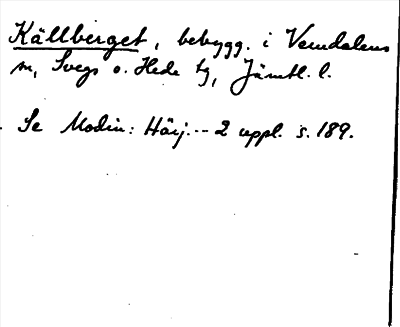 Källberget, bebygg. i Vemdalens
sn, Svegs o. Hede tg, Jämtl. l.
Se Modin: Härj. -- 2 uppl. s. 189.